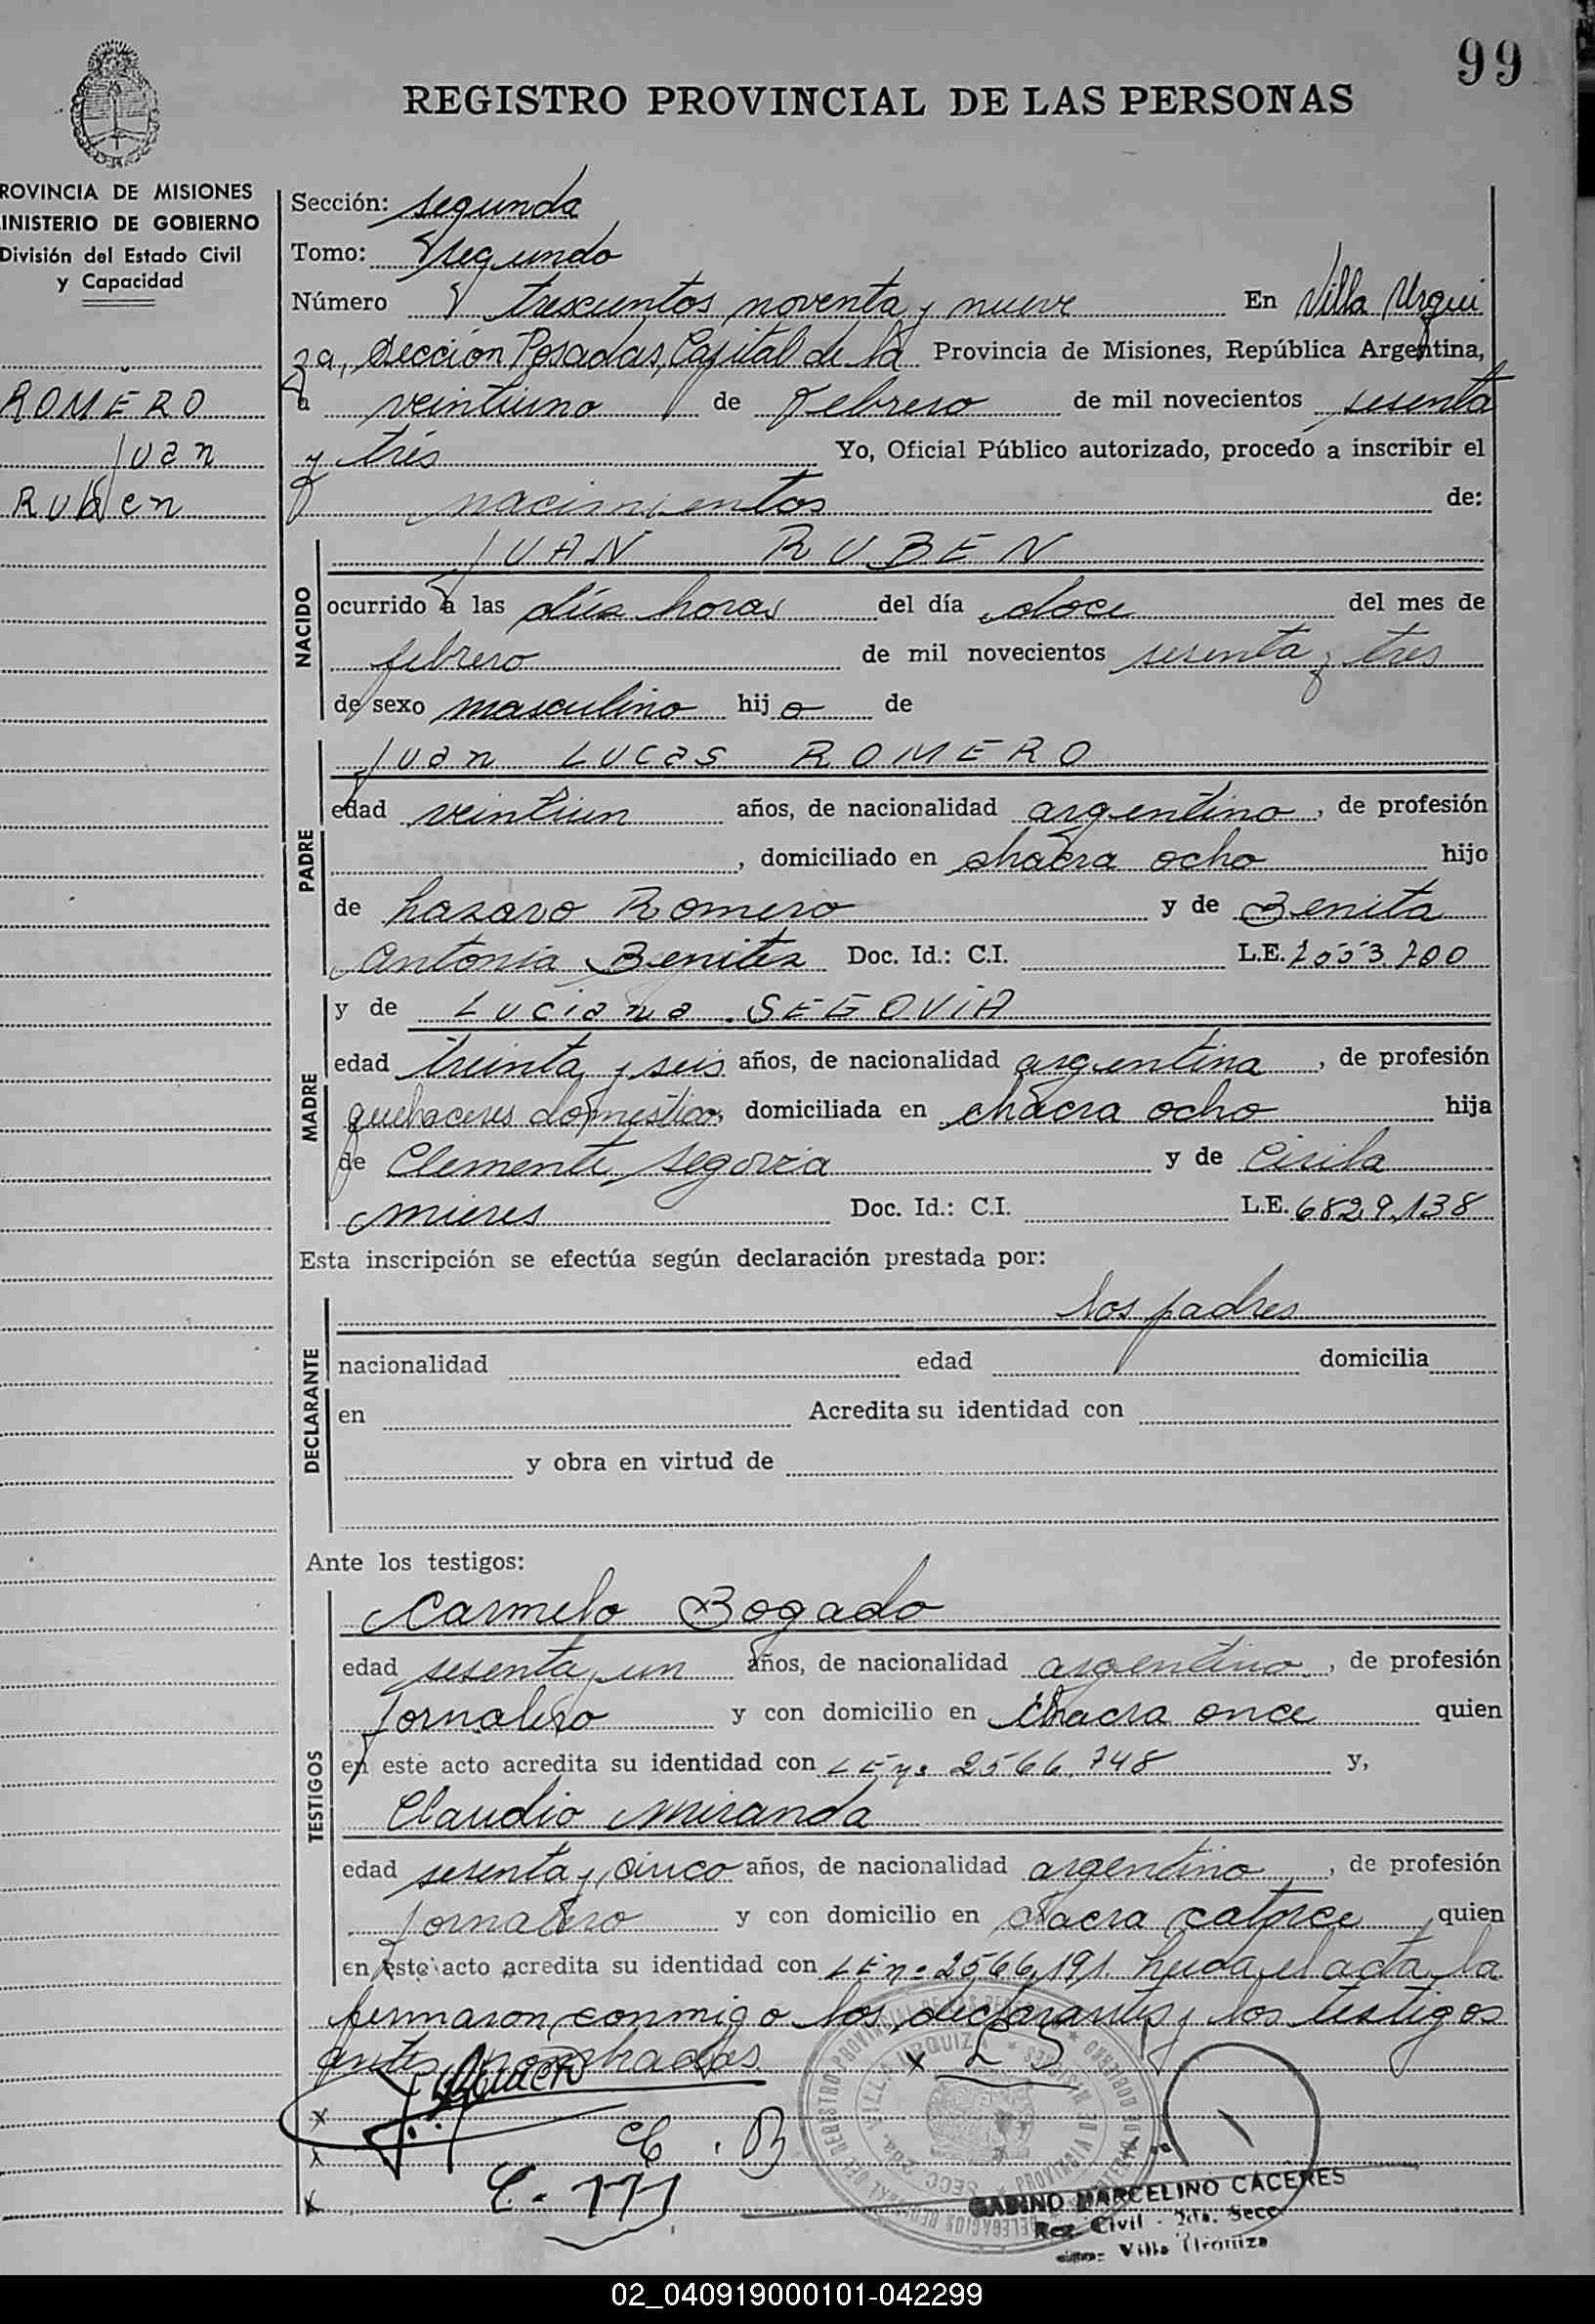 99
REGISTRO PROVINCIAL DE LAS PERSONAS
ROVINCIA DE MISIONES
INISTERIO DE GOBIERNO
División del Estado Civil
y Capacidad
ROMERO
Juan
Ruben
Sección: segunda
Tomo: Segundo
Número trescientos noventa y nueve En Villa Urqui
za, Sección Posadas, Capital de la Provincia de Misiones, República Argentina,
a veintiuno de febrero de mil novecientos sesenta
y tres Yo, Oficial Público autorizado, procedo a inscribir el
nacimientos de:
NACIDO
JUAN RUBEN
ocurrido a las diez horas del día doce del mes de
febrero de mil novecientos sesenta y tres
de sexo masculino hijo de
PADRE
Juan Lucas ROMERO
edad veintiun años, de nacionalidad argentino, de profesión
, domiciliado en chacra ocho hijo
de Lazaro Romero y de Benita
Antonia Benitez Doc. Id.: C.I. L.E.
MADRE
y de Luciana SEGOVIA
edad treinta y seis años, de nacionalidad argentina, de profesión
quehaceres domesticos, domiciliada en chacra ocho hija
de Clemente Segovia y de Cirila
Mieres Doc. Id.: C.I. L.E. 6829.138
Esta inscripción se efectúa según declaración prestada por:
DECLARANTE
los padres
nacionalidad edad domicilia
en Acredita su identidad con
y obra en virtud de
Ante los testigos:
TESTIGOS
Carmelo Bogado
edad sesenta y un años, de nacionalidad argentino, de profesión
Jornalero y con domicilio en Chacra once quien
en este acto acredita su identidad con L E nº 2566.748 y,
Claudio Miranda
edad sesenta y cinco años, de nacionalidad argentino, de profesión
Jornalero y con domicilio en chacra catorce quien
en este acto acredita su identidad con L E nº 2566.191. Leida el acta, la
firmaron conmigo los declarantes y los testigos
antes nombrados
x L S
x
x C. B
x C. M
VILLA URQUIZA
GABINO MARCELINO CACERES
Reg. Civil - 2da. Secc.
Villa Urquiza
02_040919000101-042299